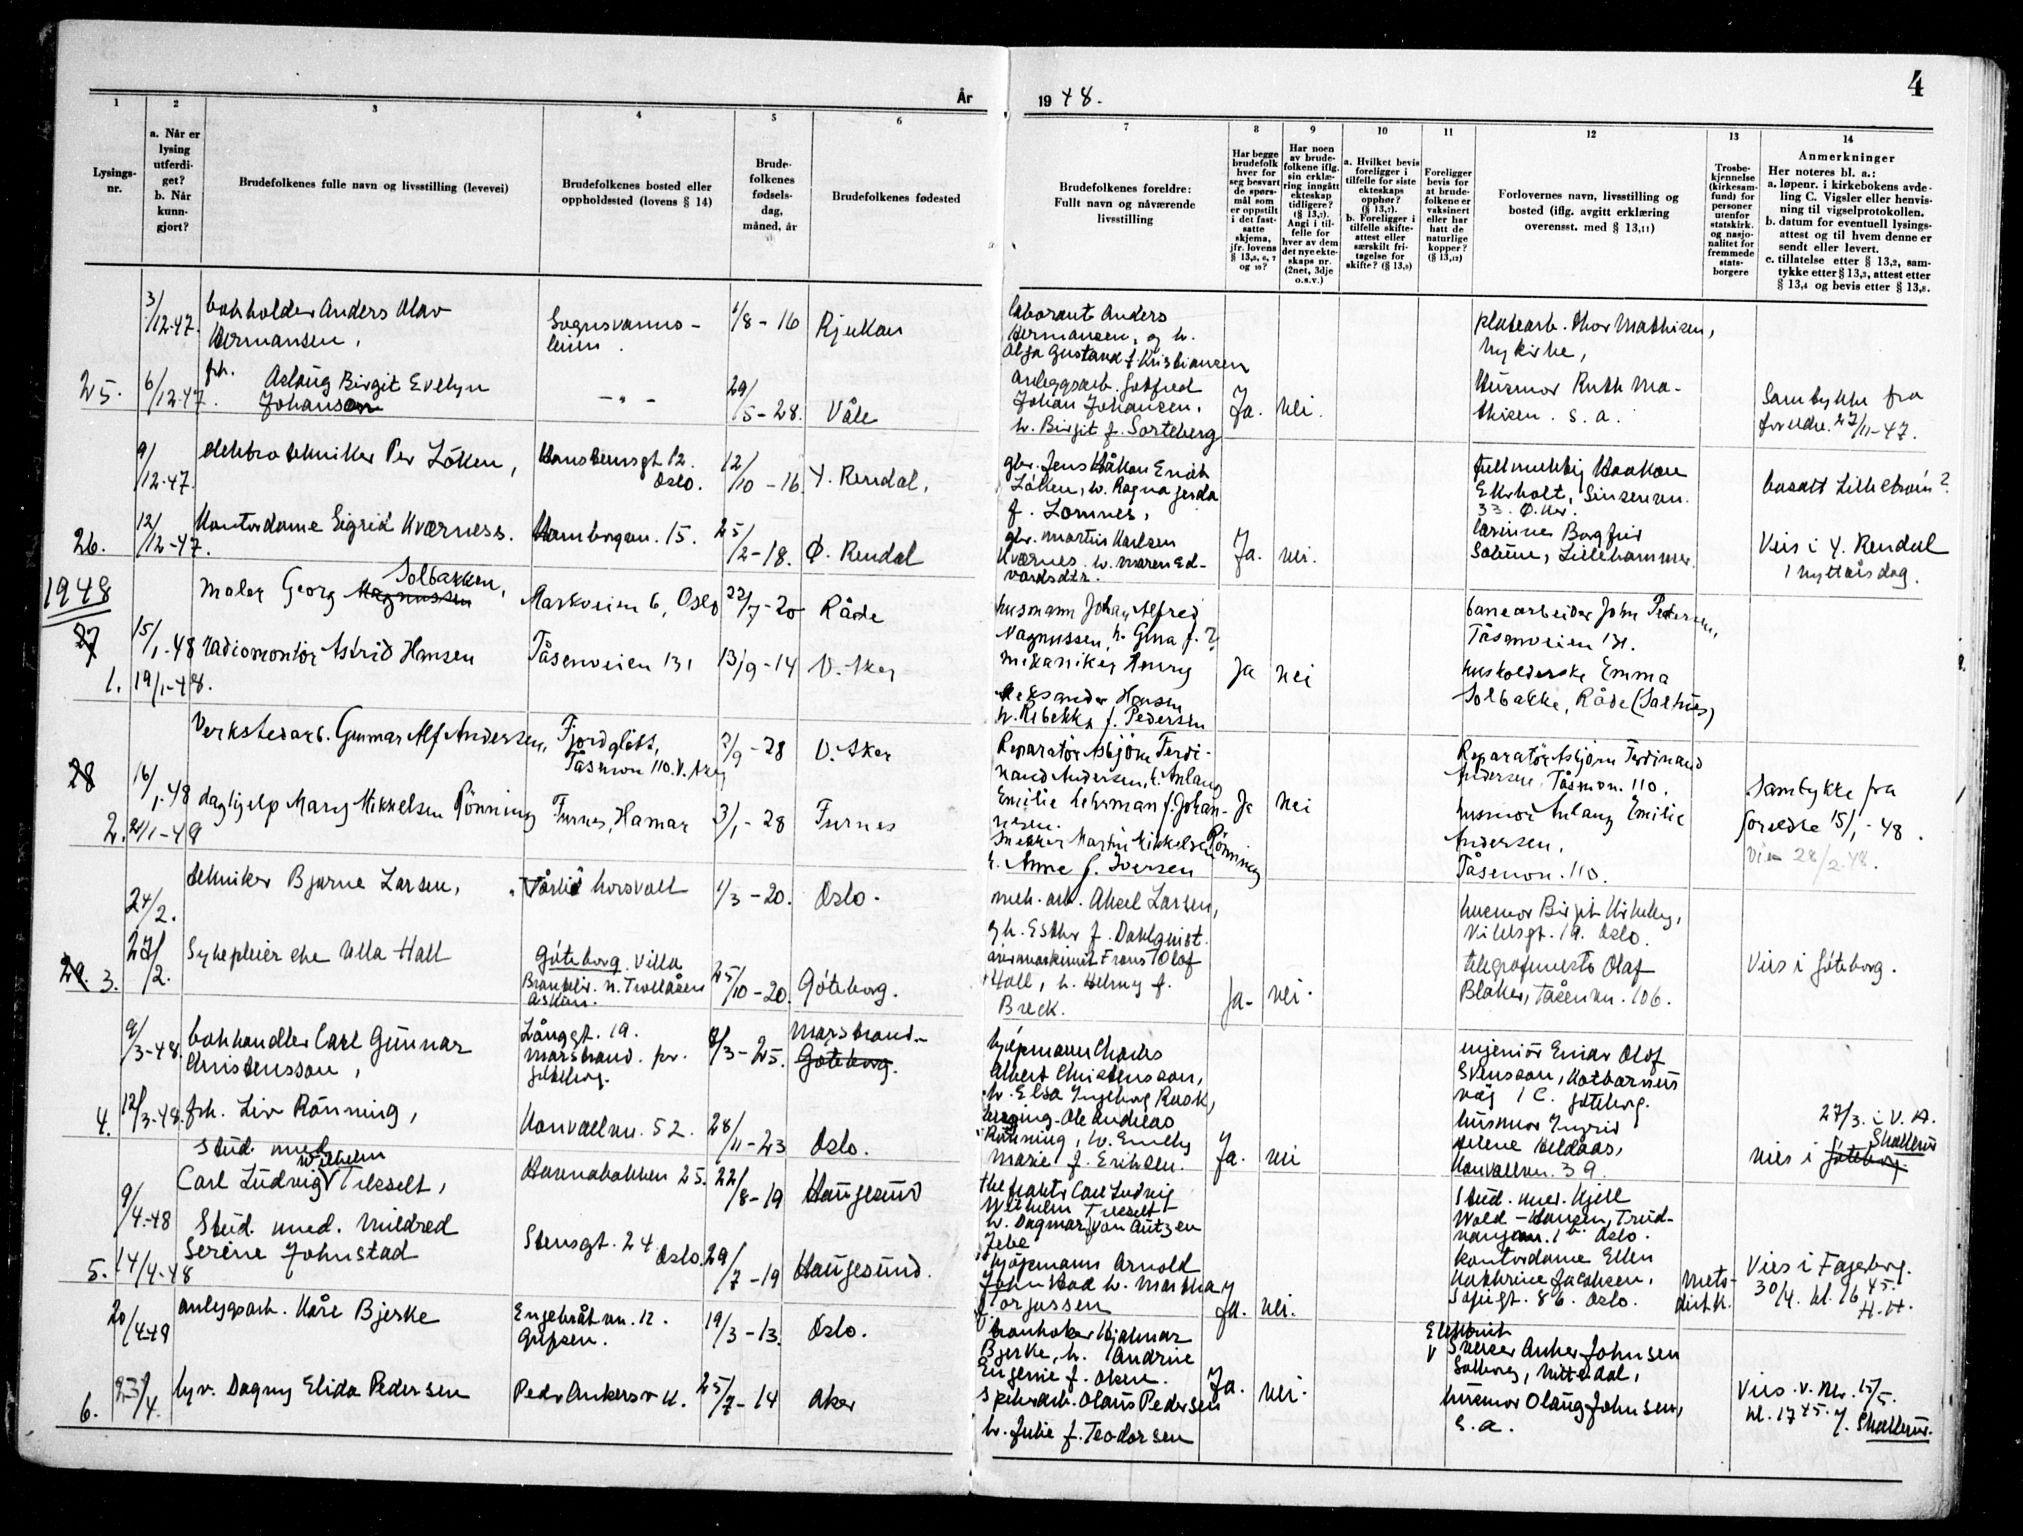 År 1948.
4
1 2 3 4 5 6 7 8 9 10 11 12 13 14
Lysings-nr.
a. Når er lysing utferdiget? b. Når kunngjort?
Brudefolkenes fulle navn og livsstilling (levevei)
Brudefolkenes bosted eller oppholdssted (lovens § 14)
Brudefolkenes fødselsdag, måned, år
Brudefolkenes fødested
Brudefolkenes foreldre: Fullt navn og nåværende livsstilling
Har begge brudefolk hver for seg besvart de spørsmål som er oppstilt i det fastsatte skjema, jfr. lovens § 13,5, 6, 7 og 10?
Har noen av brudefolkene iflg. sin erklæring inngått ekteskap tidligere? (§ 13,7). Angi i tilfelle for hver av dem det nye ekteskaps nr. (2net, 3dje o.s.v.)
a. Hvilket bevis foreligger i tilfelle for siste ekteskaps opphør? (§ 13,7). b. Foreligger i tilfelle skifteattest eller særskilt fritagelse for skifte? (§ 13,9)
Foreligger bevis for at brudefolkene er vaksinert eller har hatt de naturlige kopper? (§ 13,12)
Forlovernes navn, livsstilling og bosted (iflg. avgitt erklæring overensst. med § 13,11)
Trosbekjennelse (kirkesamfund) for personer utenfor statskirk. og nasjonalitet for fremmede statsborgere
Anmerkninger
Her noteres bl. a.:
a. løpenr. i kirkebokens avdeling C. Vigsler eller henvisning til vigselprotokollen.
b. datum for eventuell lysingsattest og til hvem denne er sendt eller levert.
c. tillatelse etter § 13,2, samtykke etter § 13,3, attest etter § 13,4 og bevis etter § 13,8.
3/12-47. bokholder Anders Olav Hermansen, Sognsvannsveien. 1/8-16 Rjukan
laborant Anders Hermansen, og h. Olga Gustava f. Kristiansen
platearb. Thor Mathisen, Nykirke,
25. 6/12-47. frk. Aslaug Birgit Evelyn Johansen - " - 29/5-28. Våle
anleggsarb. Gotfred Johan Johansen, h. Birgit f. Sorteberg
Ja. nei.
Husmor Ruth Mathisen. s. a.
Samtykke fra foreldre. 27/11-47.
9/12-47. elektrotekniker Per Löken, Oslo. 12/10-16 Y. Rendal,
gbr. Jens Håkon Løken, h. Ragna Gerda f. Lomnes,
fullmektig Haakon Ekerholt, Sinsenvn. 33. Ø. Aker.
bosatt Lillestrøm?
26. 12/12-47. Kontordame Sigrid Kværness. 15. 25/2-18. Ø. Rendal
gbr. Martin Karlsen Kværnes. h. Maren Edvardsdtr.
Ja. nei.
Lillehammer.
Vies i Y. Rendal 1 nyttårsdag.
1948
27 15/1-48 Maler Georg Magnussen Solbakken, Markveien 6, Oslo 22/7-20 Råde
husmann Johan Alfred Magnussen, h. Gina f. ?
banearbeider John Pedersen, Tåsenveien 131.
1. 19/1-48. radiomontör Astrid Hansen Tåsenveien 131 13/9-14 V. Aker
mekaniker Henry Aleksander Hansen h. Rebekka f. Pedersen
Ja nei
husholderske Emma Solbakke, Råde (Saltnes)
28 16/1-48 Verkstedarb. Gunnar Alf Andersen, Fjordglött, Tåsenvn 110. V. Aker 2/9-28 V. Aker
Reparatör Asbjörn Ferdinand Andersen, h. Aslaug Emilie Lehrman f. Johannesen.
Reparatör Asbjörn Ferdinand Andersen, Tåsenvn. 110.
2. 21/1-49 daghjelp Mary Mikkelsen Rönning Furnes, Hamar 3/1-28 Furnes
snekker Martin Mikkelsen Rönning h. Anne f. Iversen
Ja nei
husmor Aslaug Emilie Andersen, Tåsenvn. 110.
Samtykke fra foreldre 15/1-48.
Vie 28/2-48.
24/2. tekniker Bjarne Larsen, 1/3-20. Oslo.
mek. arb. Aksel Larsen, g h. Esther f. Dahlquist.
husmor Birgit Kirkeby, 19. Oslo.
29. 3. 27/2. Sykepleierske Ulla Hall Göteborg. Villa n. Trollåsen Askim. 25/10-20. Göteborg.
Frans Olof Hall, h. Helmy f. Breck.
Ja- nei.
Olaf Blaker, Tåsenvn. 106.
Vies i Göteborg.
9/3-48. bokhandler Carl Gunnar Christensson, Långgt. 19. Marstrand. pr. Göteborg. 8/3-25. Marstrand. Göteborg.
kjöpmann Charles Albert Christensson, h. Elsa Ingeborg Rask,
ingeniör Einar Olof Svensson, väg 1 C. Göteborg.
4. 12/3-48. frk. Liv Rönning, Konvallvn. 52. 28/11-23 Oslo.
Ole Andreas Rönning, h. Emely Marie f. Eriksen.
Ja. nei
husmor Ingrid Helene Heldaas, Konvallvn. 39.
27/3. i V. A. Skøllerud
vies i Göteborg.
9/4-48 Stud. med Carl Ludvig Wilhelm Tilsselt, Havnabakken 25. 22/8-19 Haugesund
Carl Ludvig Wilhelm Tilsselt h. Dagmar von Autzen Jebe
Stud. med. Kjell Wold-Hansen, Oslo.
5. 14/4-48 Stud. med. Mildred Serene Johnstad Stensgt. 24 Oslo. 29/7-19 Haugesund.
kjöpmann Arnold Johnstad h. Martha f. Torjussen
Ja. nei.
kontordame Ellen Kathrine Jacobsen, Sofiesgt. 86. Oslo.
Vies i Fagerborg. 30/4. kl. 16 45. H. H.
20/4-48 anleggsarb. Kåre Bjerke Engebråtvn. 12. Grefsen. 19/3-13. Oslo.
Hjalmar Bjerke, h. Andrine Eugenie f. Olsen.
Anker Johnsen Solberg, Nittedal,
6. 23/4. syv. Dagny Elida Pedersen Peder Ankersv 11. 25/7-14 Aker
Olaus Pedersen h. Julie f. Teodorsen
Ja. nei.
husmor Olaug Johnsen, s. a.
Vies. v. 15/5. kl. 17 45.